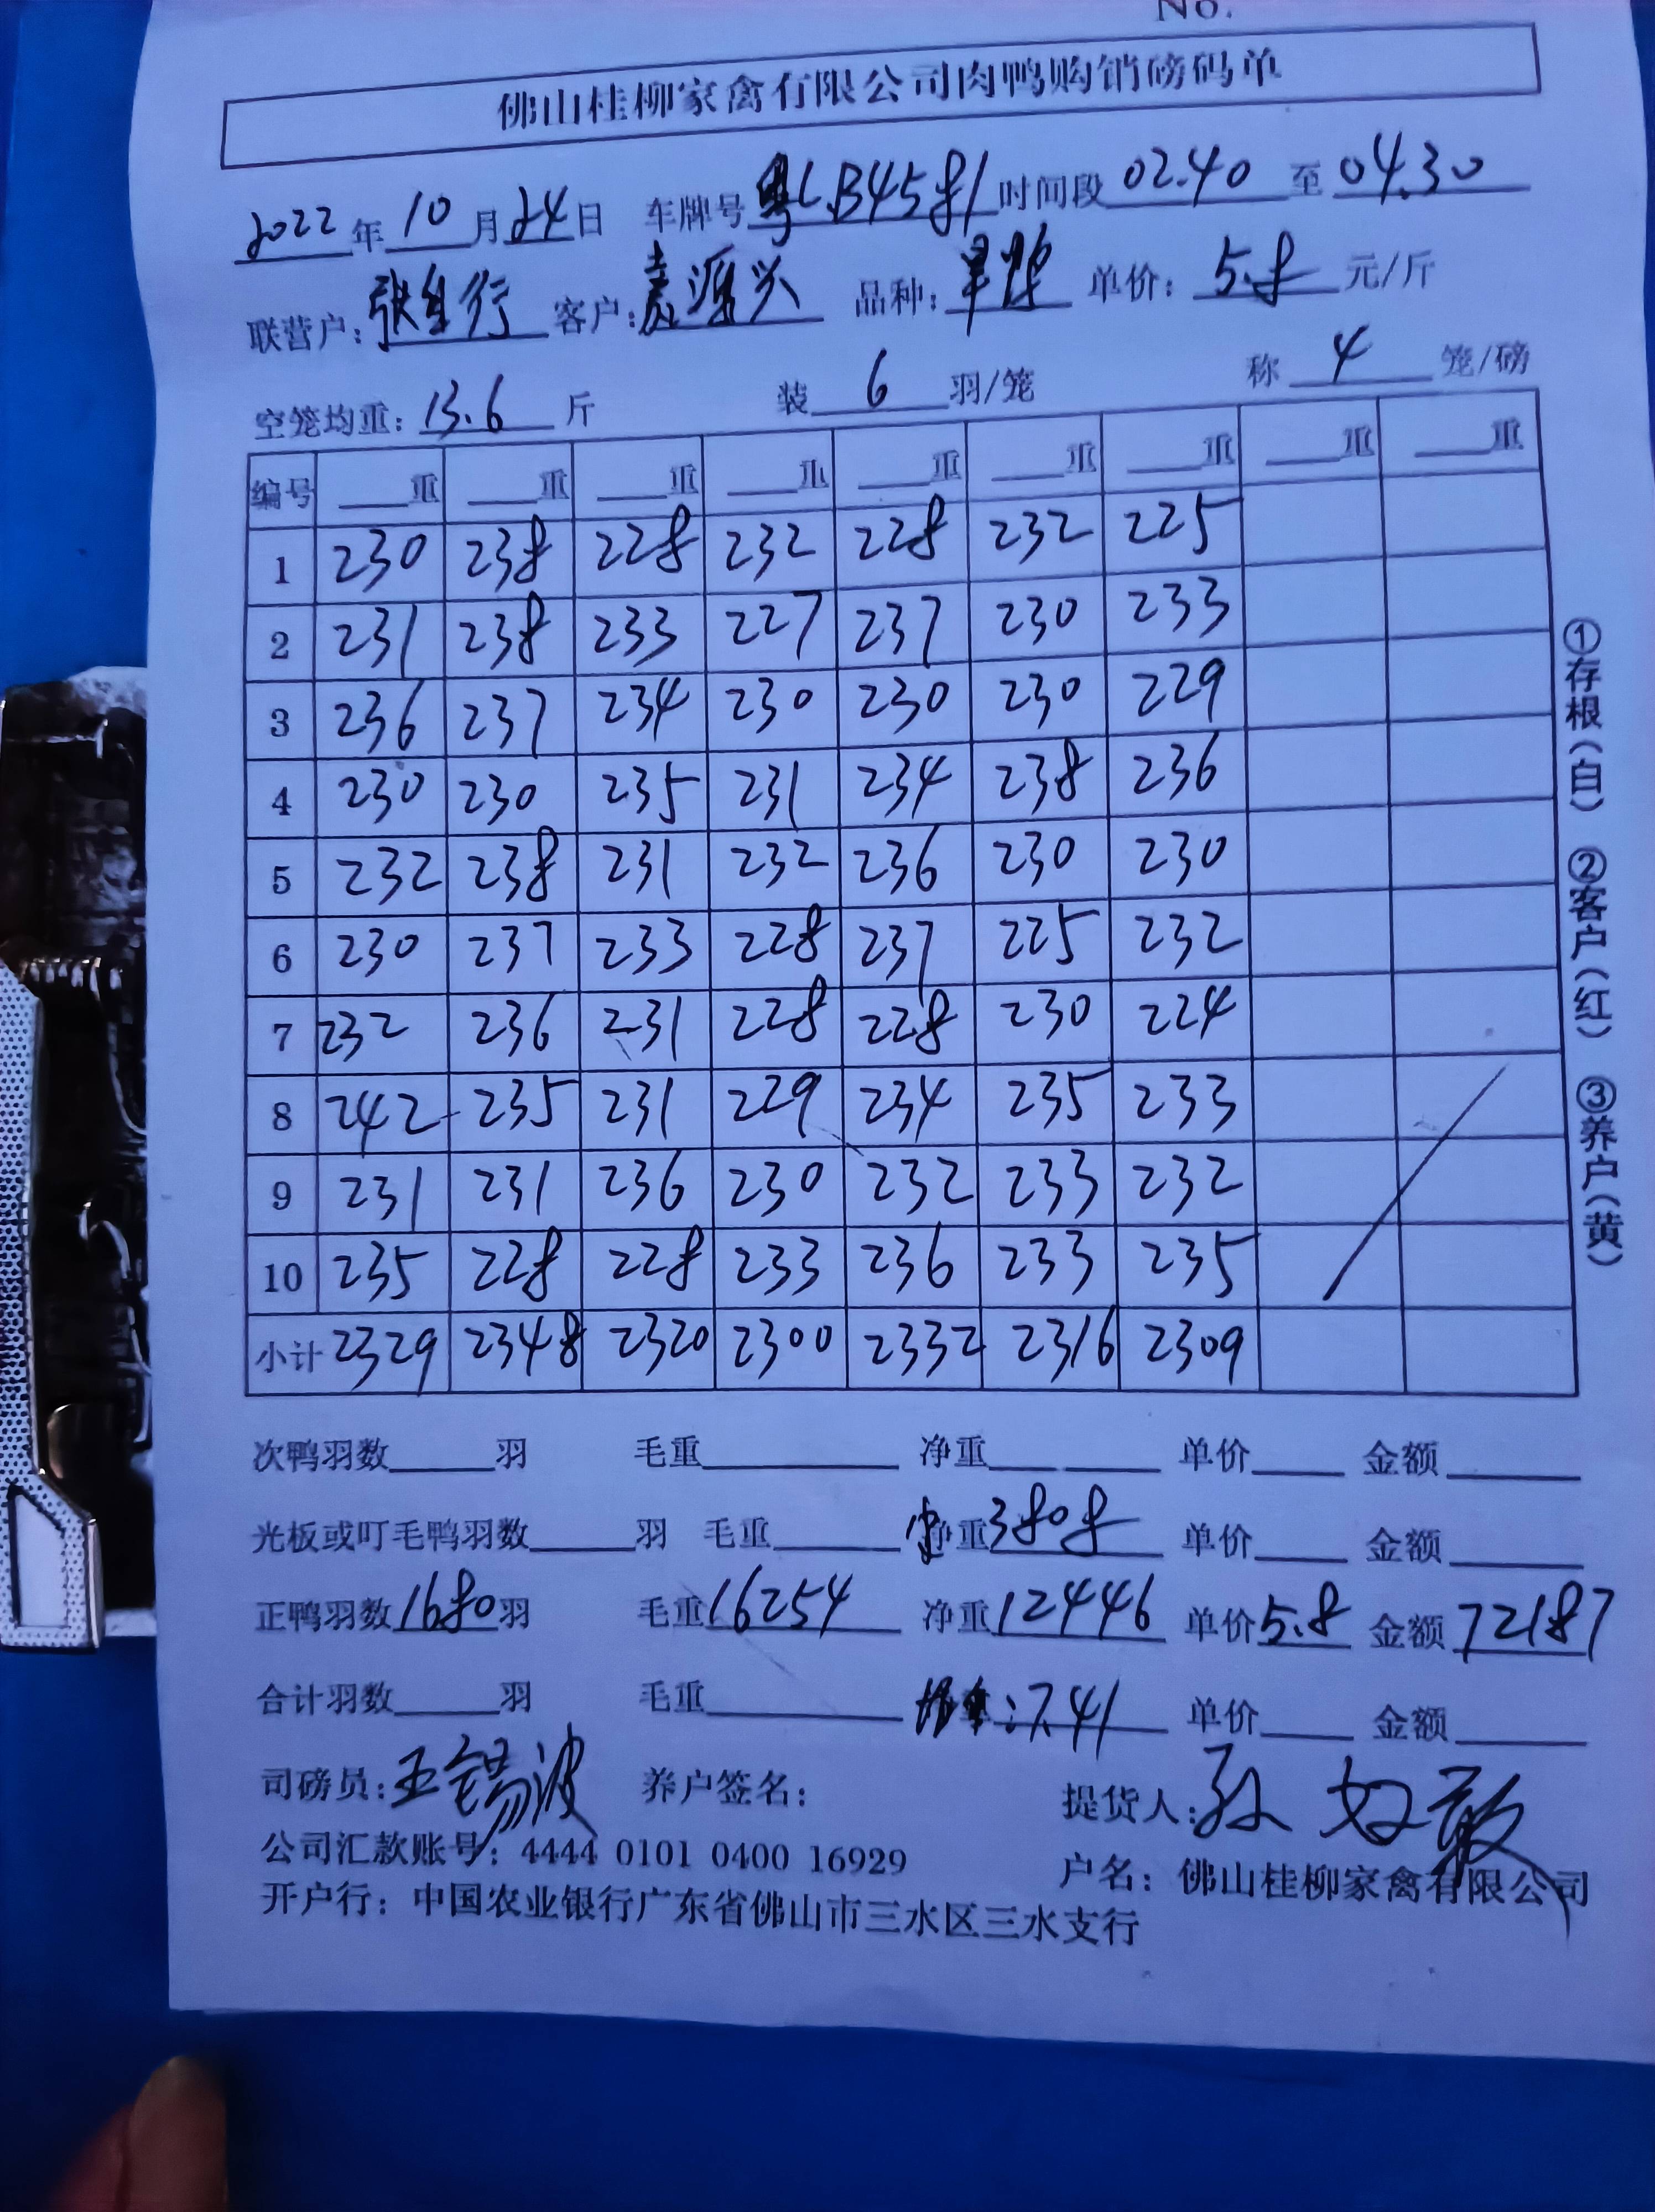 No.
佛山桂柳家禽有限公司肉鸭购销磅码单
2022年10月24日 车牌号粤L.B4581时间段02.40至04.30
联营户: 客户:源兴 品种: 单价:5.8元/斤
空笼均重:13.6斤 装6羽/笼 称4笼/磅
编号 重 重 重 重 重 重 重 重 重
1 230 238 228 232 228 232 225
2 231 238 233 227 237 230 233
3 236 237 234 230 230 230 229
4 230 230 235 231 234 238 236
5 232 238 231 232 236 230 230
6 230 237 233 228 237 225 232
7 232 236 231 228 228 230 224
8 242 235 231 229 234 235 233
9 231 231 236 230 232 233 232
10 235 228 228 233 236 233 235
小计 2329 2348 2320 2300 2332 2316 2309
次鸭羽数 羽 毛重 净重 单价 金额
光板或叮毛鸭羽数 羽 毛重 重3808 单价 金额
正鸭羽数1680羽 毛重16254 净重12446 单价5.8 金额72187
合计羽数 羽 毛重 :7.41 单价 金额
司磅员:王锡波 养户签名: 提货人:孙
公司汇款账号:4444 0101 0400 16929 户名:佛山桂柳家禽有限公司
开户行:中国农业银行广东省佛山市三水区三水支行
①存根(白) ②客户(红) ③养户(黄)